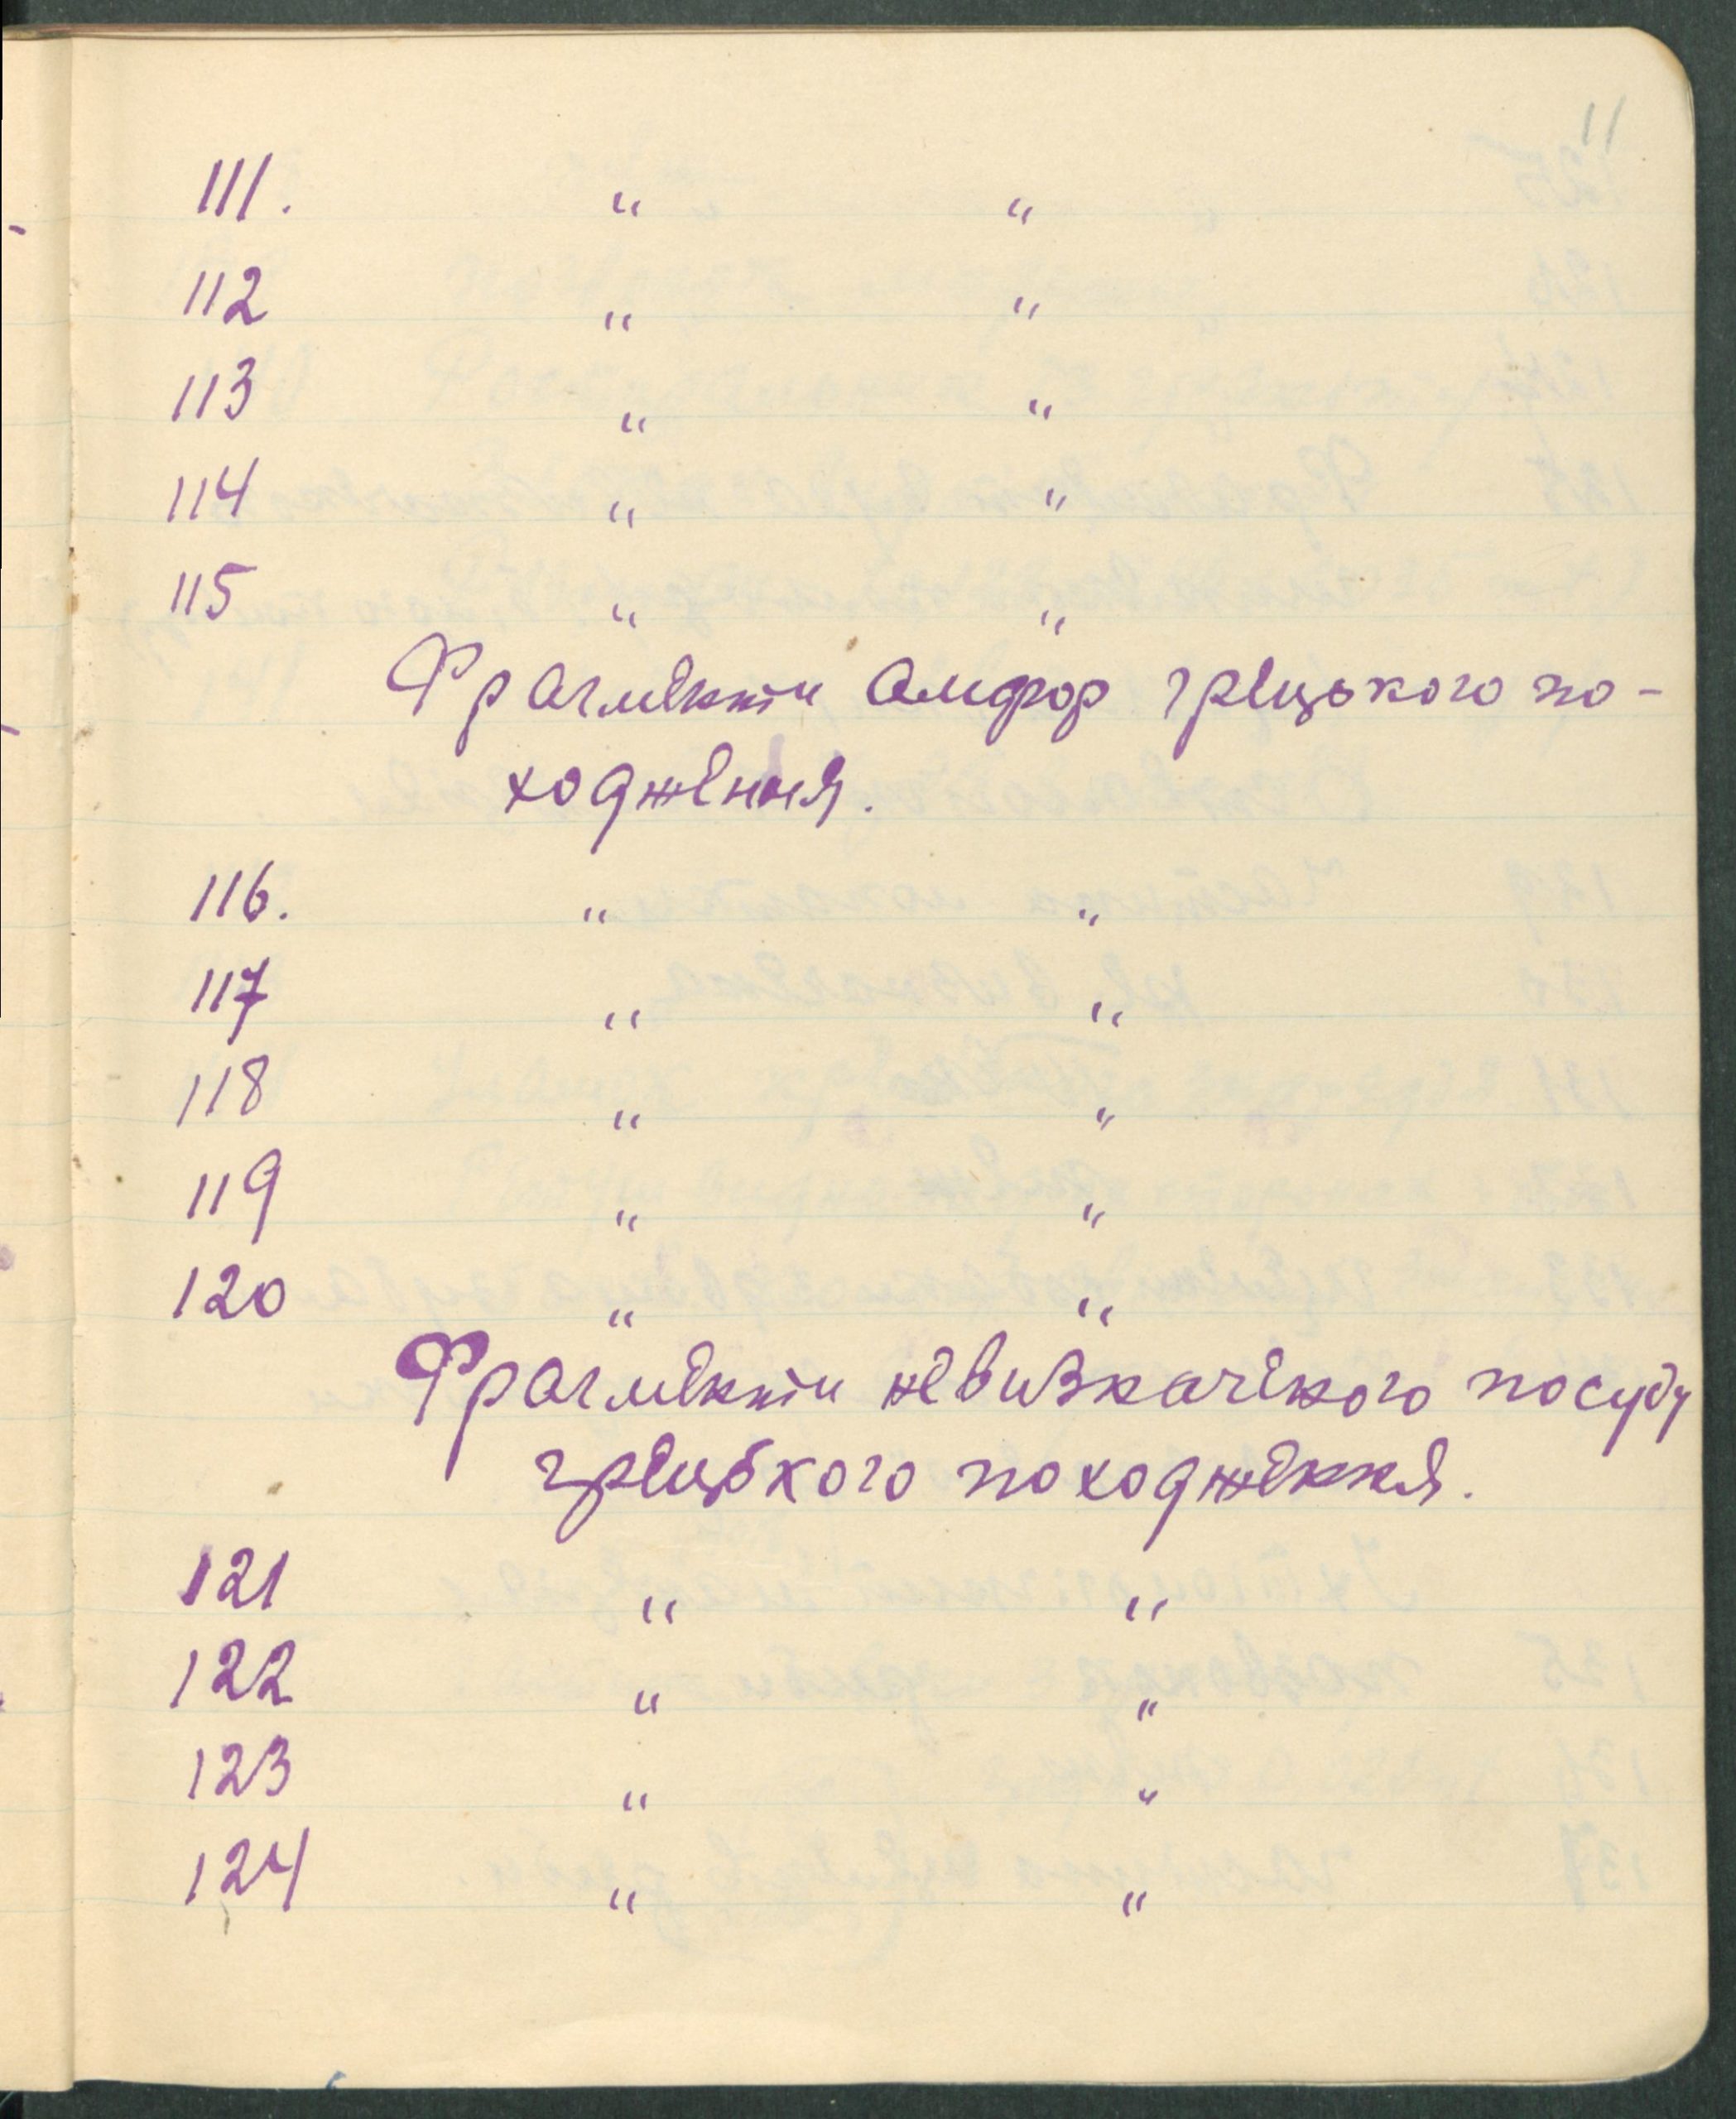 11
111. " "
112 " "
113 " "
114 " "
115 " "
Фрагменти амфор грецького по-
ходження.
116. " "
117 " "
118 " "
119 " "
120 " "
Фрагменти невизначеного посуду
грецького походження.
121 " "
122 " "
123 " "
124 " "